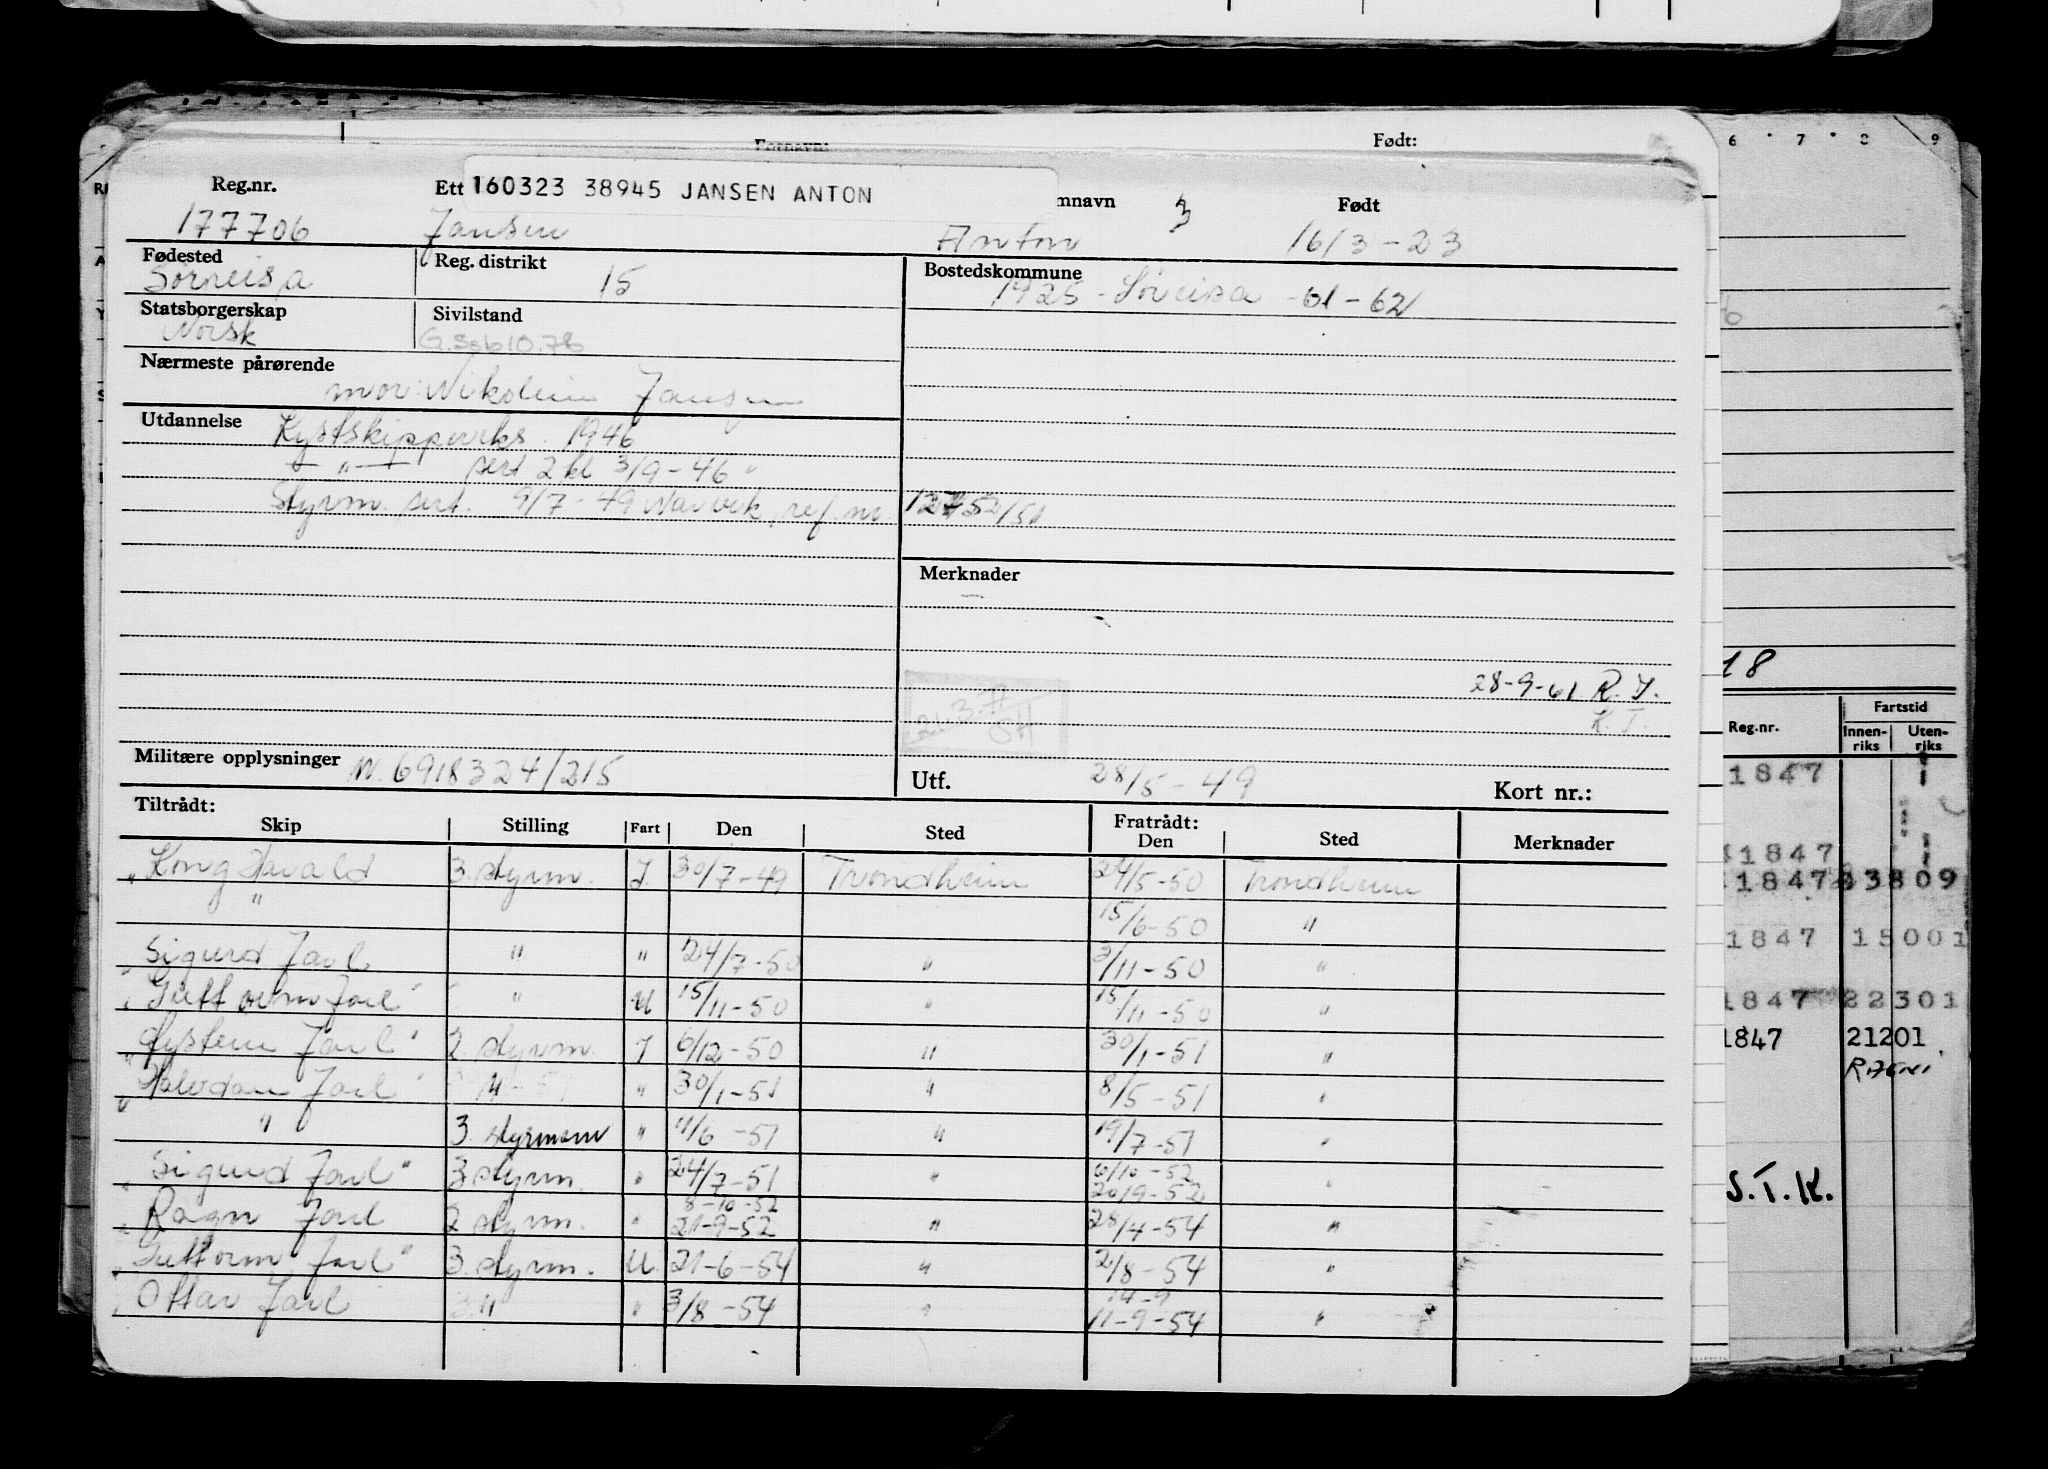 Fornavn: Født:
6 7 8 9
Reg.nr. Ett 160323 38945 JANSEN ANTON mnavn 3 Født
177706 Jansen Anton 16/3-23
Fødested Reg. distrikt Bostedskommune
Sörreisa 15 1925 - Söreisa -61-62
Statsborgerskap Sivilstand
Norsk
Nærmeste pårørende
mor: Nikoline Jansen
Utdannelse Kystskipperks. 1946
— " — sert 2 kl 3/9-46
Styrm. sert. 9/7-49 Narvik, ref. nr. /51
Merknader
28-9-61 R.Y.
K.T.
18
Militære opplysninger N. 6918324/215 Utf. 28/5-49 Kort nr.:
Reg.nr. Fartstid
Innen-riks Uten-riks
Tiltrådt: Fratrådt:
Skip Stilling Fart Den Sted Den Sted Merknader
"Kong Harald 3. styrm. I. 30/7-49 Trondheim 24/5-50 Trondheim
" 15/6-50 "
Sigurd Jarl " " 24/7-50 " 3/11-50 "
"Guttorm Jarl" " U 15/11-50 " 15/11-50 "
"Øystein Jarl" 2. styrm. I 6/12-50 " 30/1-51 "
"Halvdan Jarl" " " 30/1-51 " 8/5-51 "
" 3. styrmann " 11/6-51 " 19/7-51 "
"Sigurd Jarl" 3 styrm. " 24/7-51 " 6/10-52 20/9-52 "
"Ragn Jarl 2 styrm. " 8-10-52 21-9-52 " 28/4-54 "
"Guttorm Jarl" 3. styrm. U. 21-6-54 " 2/8-54 "
"Ottar Jarl 3. " " 3/8-54 " 11-9-54 "
1847
1847
1847 3809
1847 15001
1847 22301
1847 21201
S.T.K.